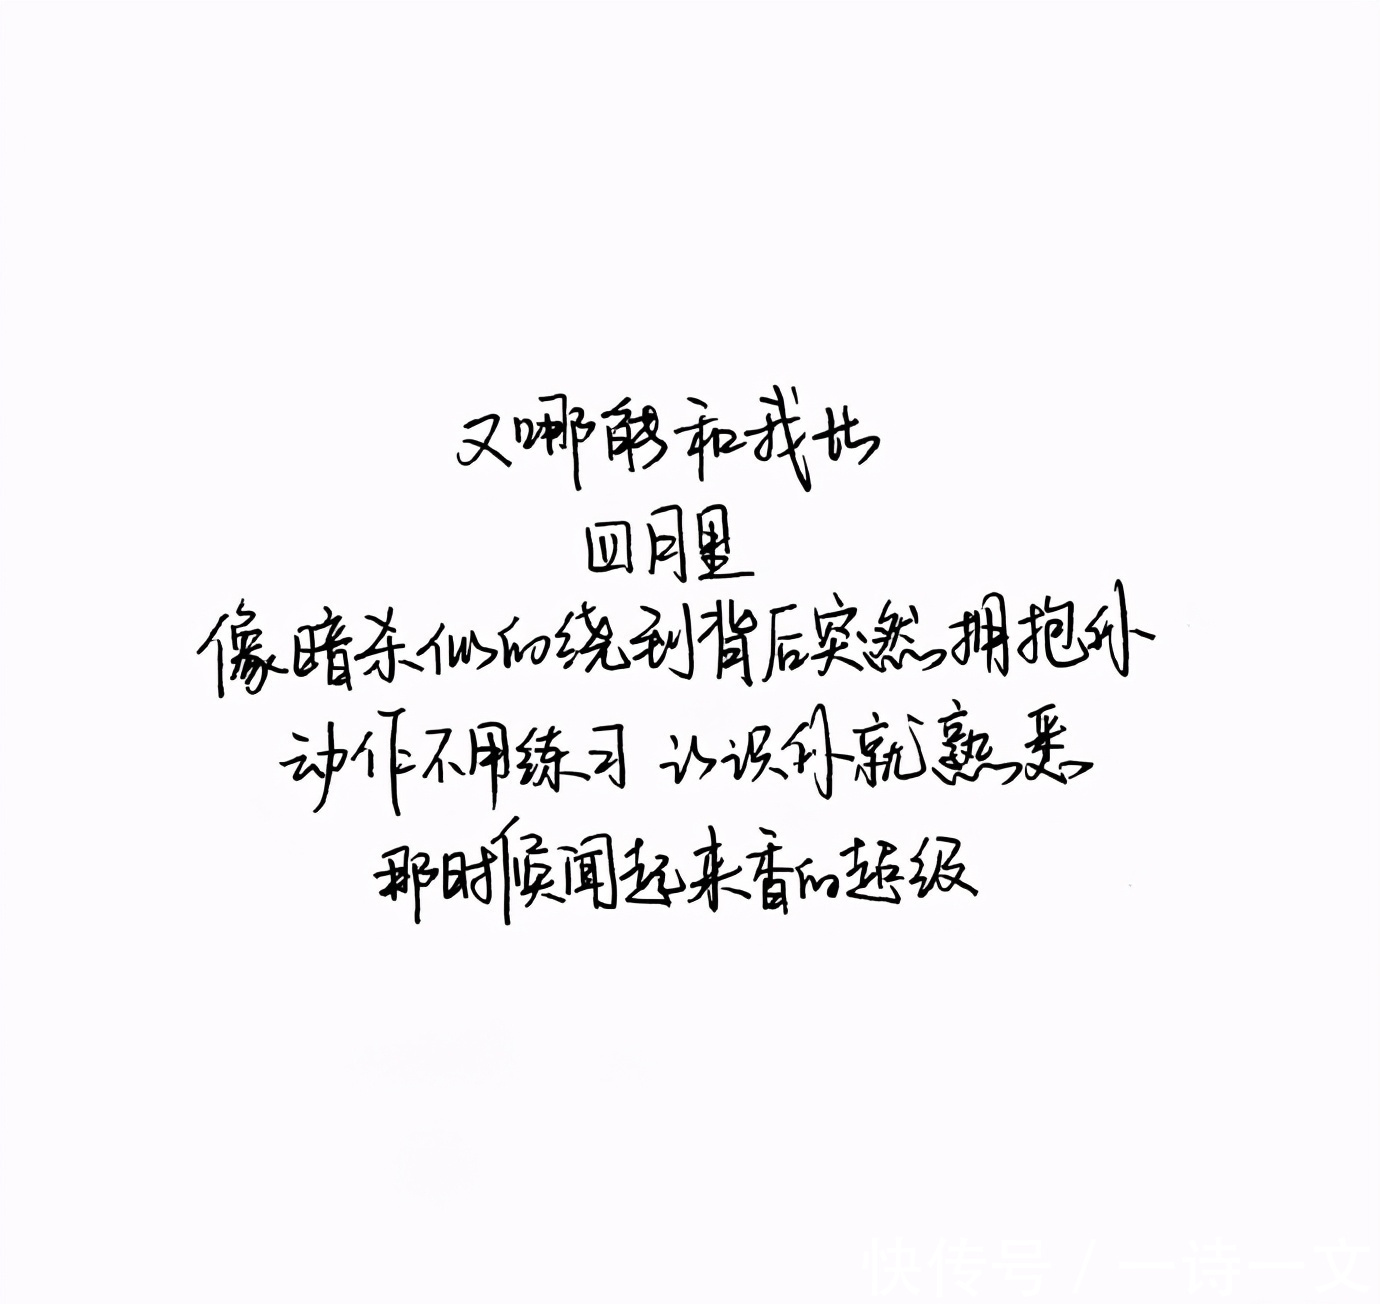 又哪能和我比
四月里
像暗杀似的绕到背后突然拥抱你
动作不用练习 认识你就熟悉
那时候闻起来香的超级
快传号 / 一诗一文